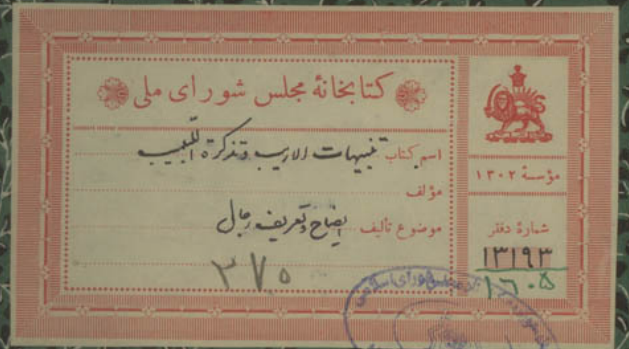 کتابخانهٔ مجلس شورای ملی
اسم کتاب تنبیهات الاریب و تذکرة اللبیب
مؤلف
موضوع تألیف ایضاح و تعریف رجال
۳۷۵
مؤسسهٔ ۱۳۰۲
شمارهٔ دفتر
۱۳۱۹۳
۱۶۰۵
شورای اسلامی